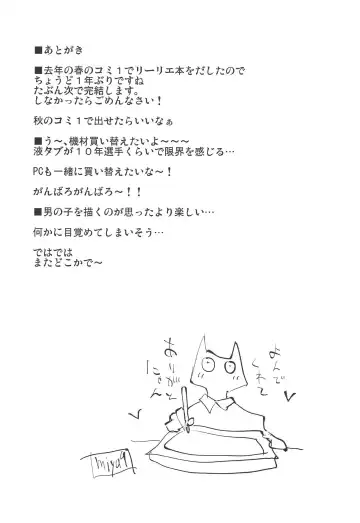 ■あとがき
■去年の春のコミ1でリーリエ本をだしたので
ちょうど1年ぶりですね
たぶん次で完結します。
しなかったらごめんなさい！
秋のコミ1で出せたらいいなぁ
■う～、機材買い替えたいよ～～～
液タブが10年選手くらいで限界を感じる…
PCも一緒に買い替えたいな～！
がんばろがんばろ～！！
■男の子を描くのが思ったより楽しい…
何かに目覚めてしまいそう…
ではでは
またどこかで～
よんで
くれて
ありがと
にゃん
miya9